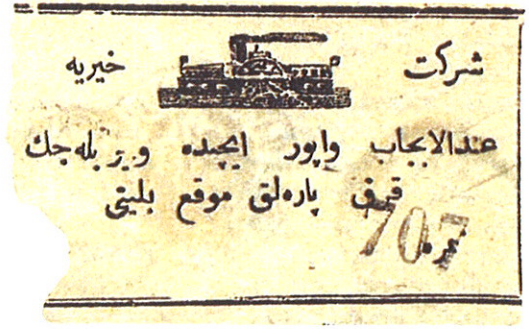 شركت خيريه
عندالايجاب واپور ايچنده ويريله جك
قرق پاره لق موقع بليتى
نمره 707